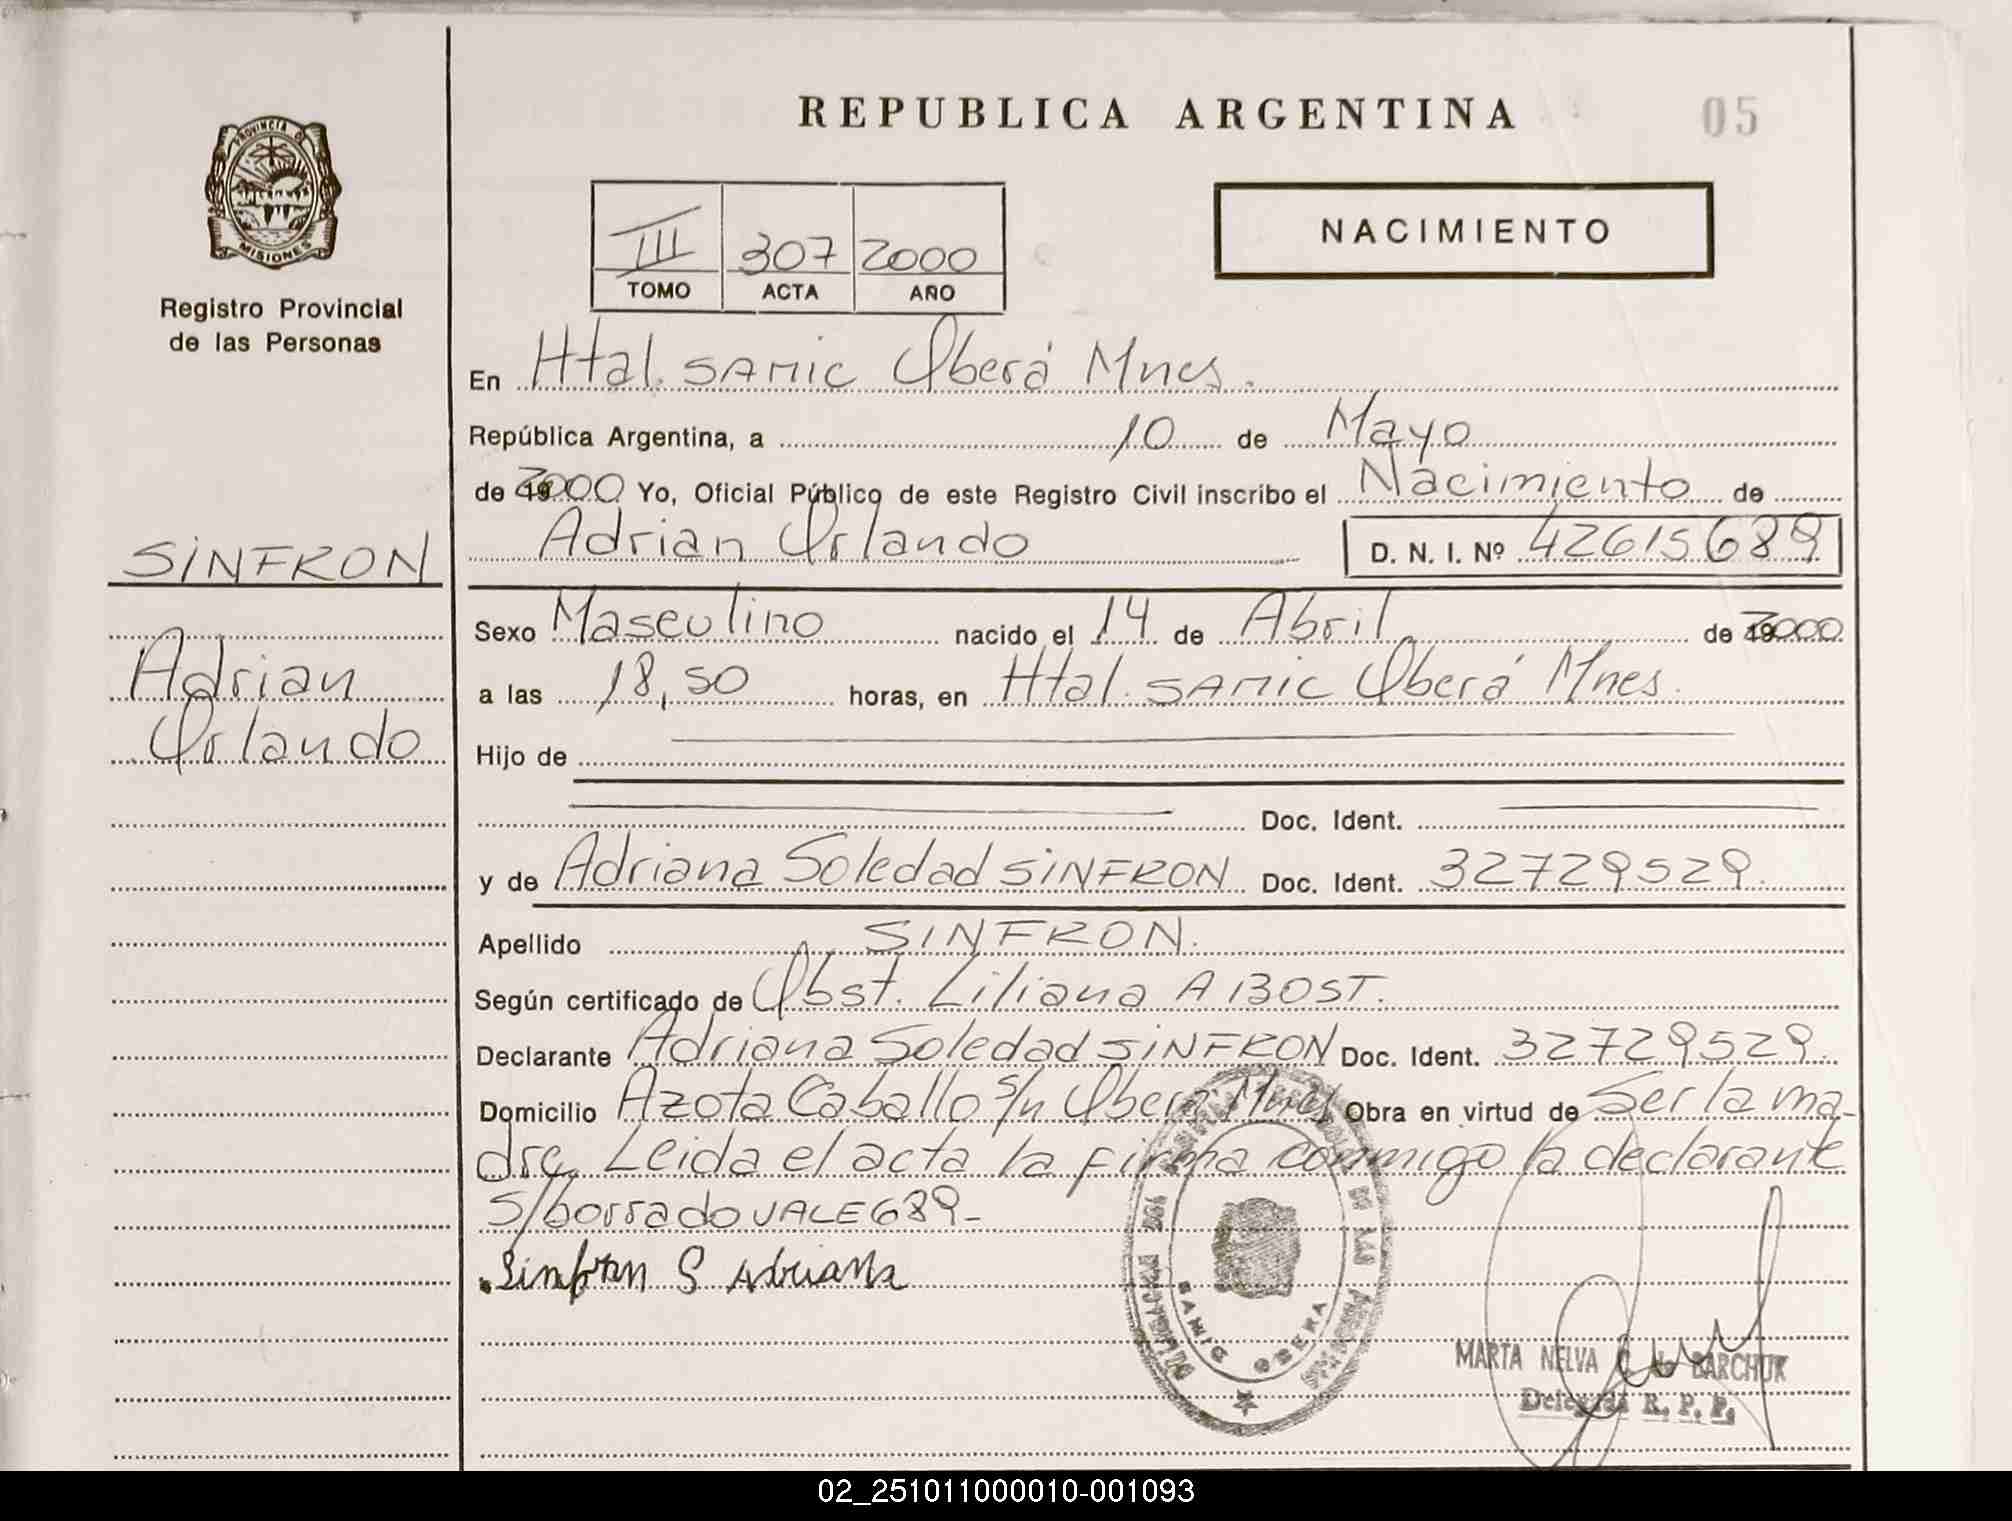 REPUBLICA ARGENTINA
05
PROVINCIA DE
MISIONES
Registro Provincial
de las Personas
III 307 2000
TOMO ACTA AÑO
NACIMIENTO
En Htal. SAMIC Oberá Mnes.
República Argentina, a 10 de Mayo
de 2000 Yo, Oficial Público de este Registro Civil inscribo el Nacimiento de
Adrian Orlando D. N. I. Nº 42615689
SINFRON
Adrian
Orlando
Sexo Masculino nacido el 14 de Abril de 2000
a las 18,50 horas, en Htal. SAMIC Oberá Mnes.
Hijo de
Doc. Ident.
y de Adriana Soledad SINFRON Doc. Ident. 32729529
Apellido SINFRON.
Según certificado de Obst. Liliana A BOST.
Declarante Adriana Soledad SINFRON Doc. Ident. 32729529
Domicilio Azota Caballo s/n Oberá Mnes Obra en virtud de Ser la ma-
dre. Leida el acta la firma conmigo la declarante
S/borrado VALE 689-
Sinfron S Adriana
SAMIC OBERA
MARTA NELVA C. de BARCHUK
Delegada R. P. P.
02_251011000010-001093